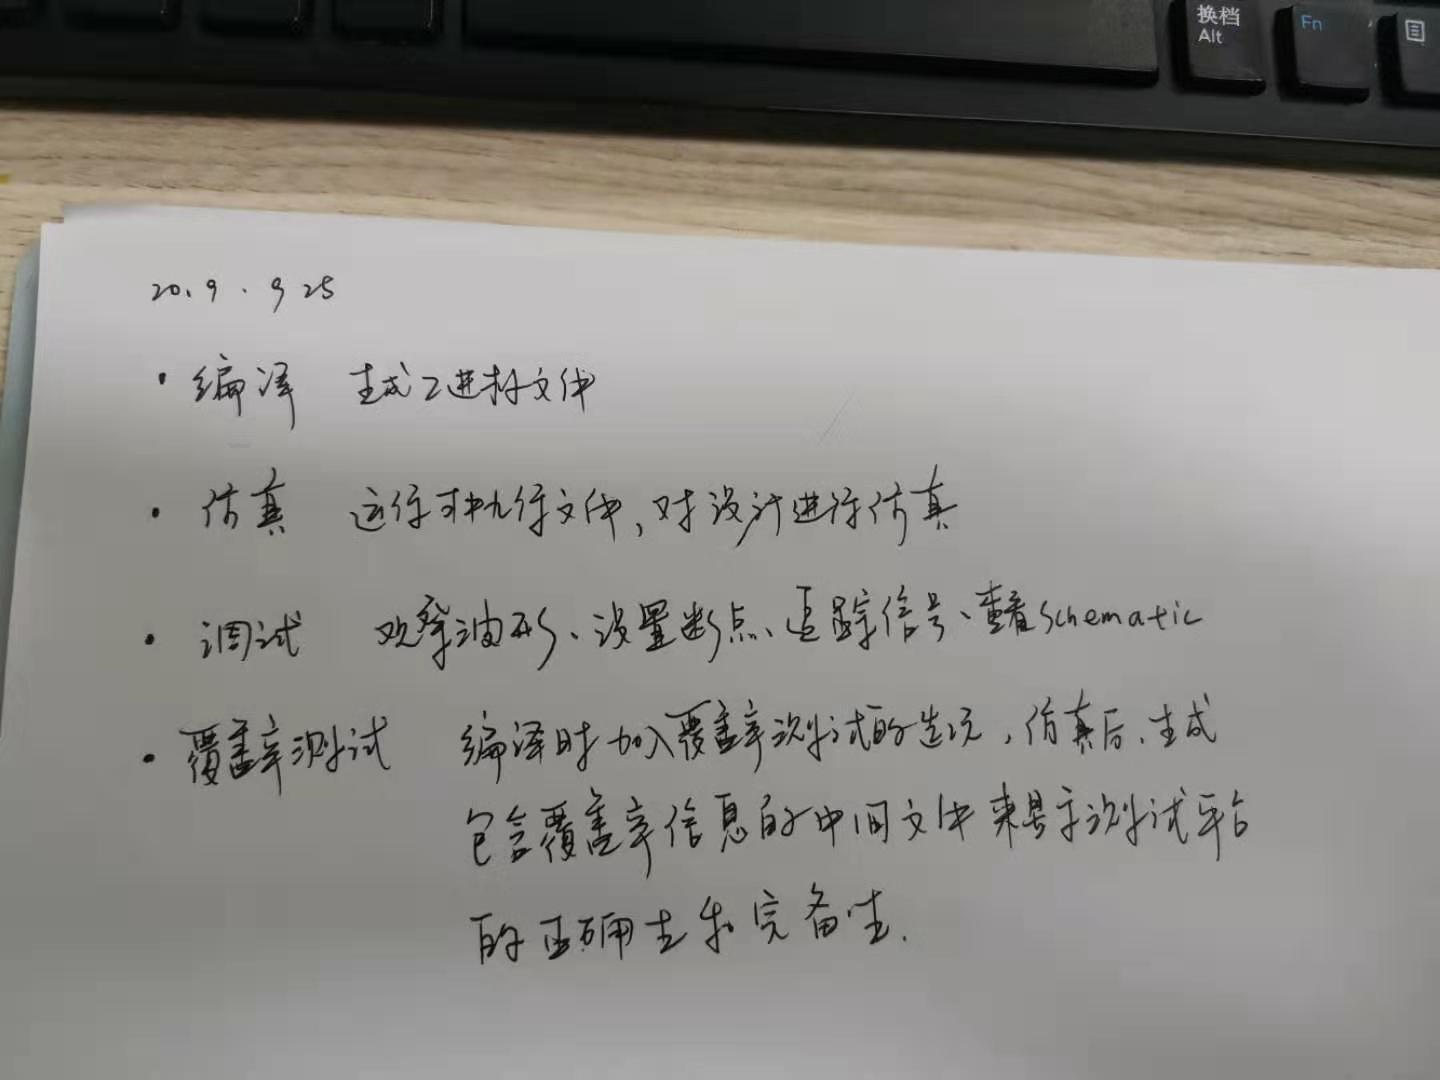 换档
Alt
Fn
2019.9 25
· 编译 生成二进制文件
· 仿真 运行可执行文件,对设计进行仿真
· 调试 观察波形、设置断点、追踪信号、查看schematic
· 覆盖率测试 编译时加入覆盖率测试的选项,仿真后、生成
包含覆盖率信息的中间文件来展示测试平台
的正确性和完备性.